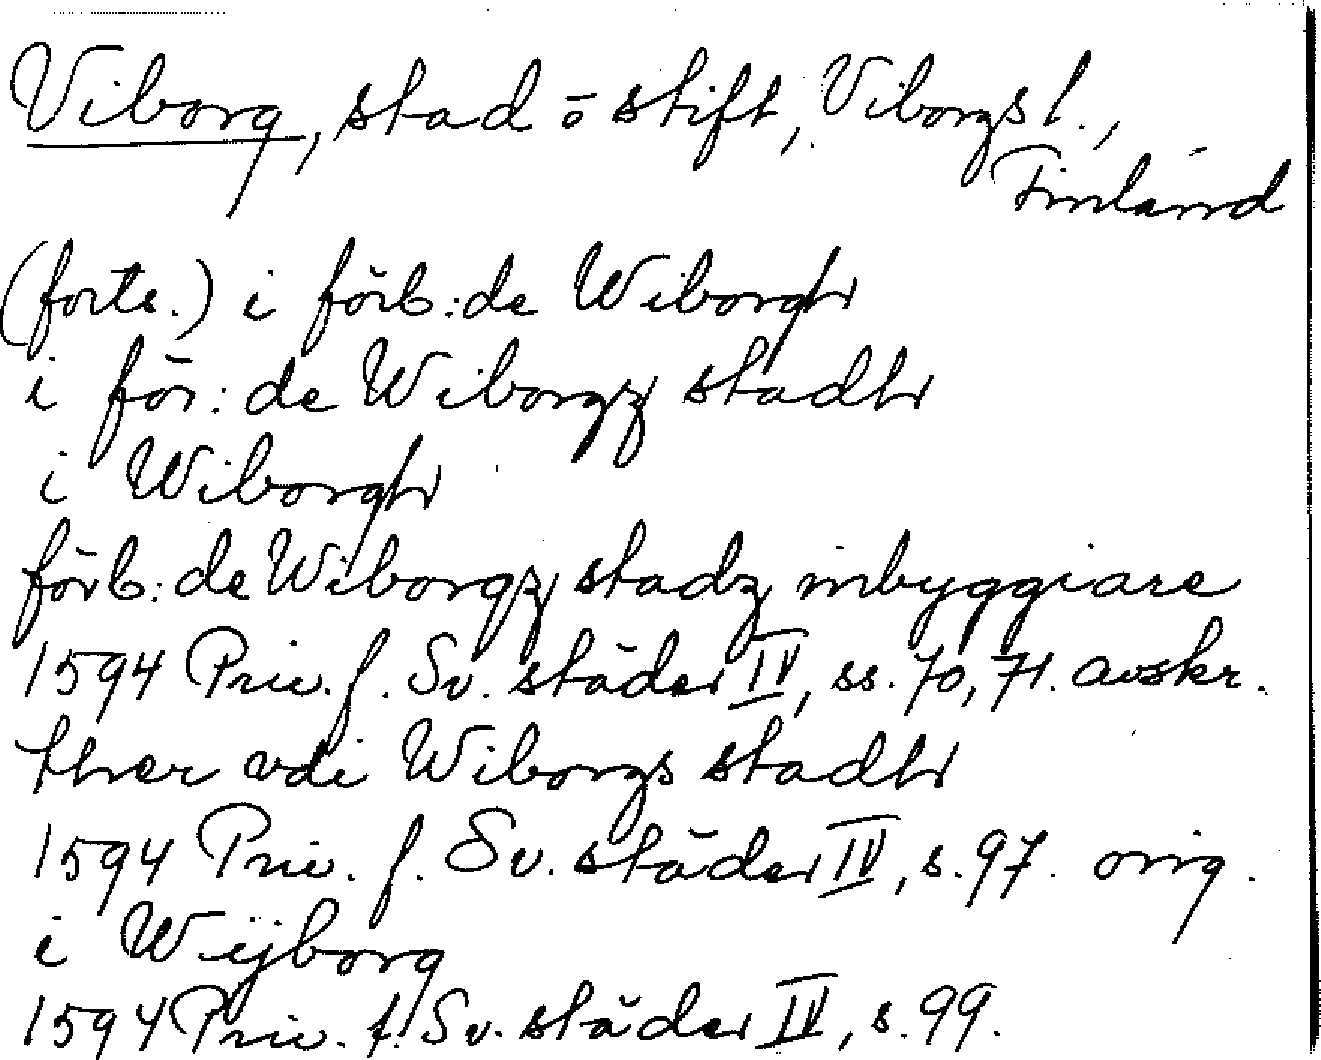 Viborg, stad ō stift, Viborgs l.,
Finland
(forts.) i förb:de Wiborgh
i för:de Wiborgz stadh
i Wiborgh
förb:de Wiborgz stadz inbyggiare
1594 Priv. f. Sv. städer IV, ss. 70, 71. avskr.
ther vdi Wiborgs stadh
1594 Priv. f. Sv. städer IV, s. 97. orig.
i Wijborg
1594 Priv. f. Sv. städer IV, s. 99.